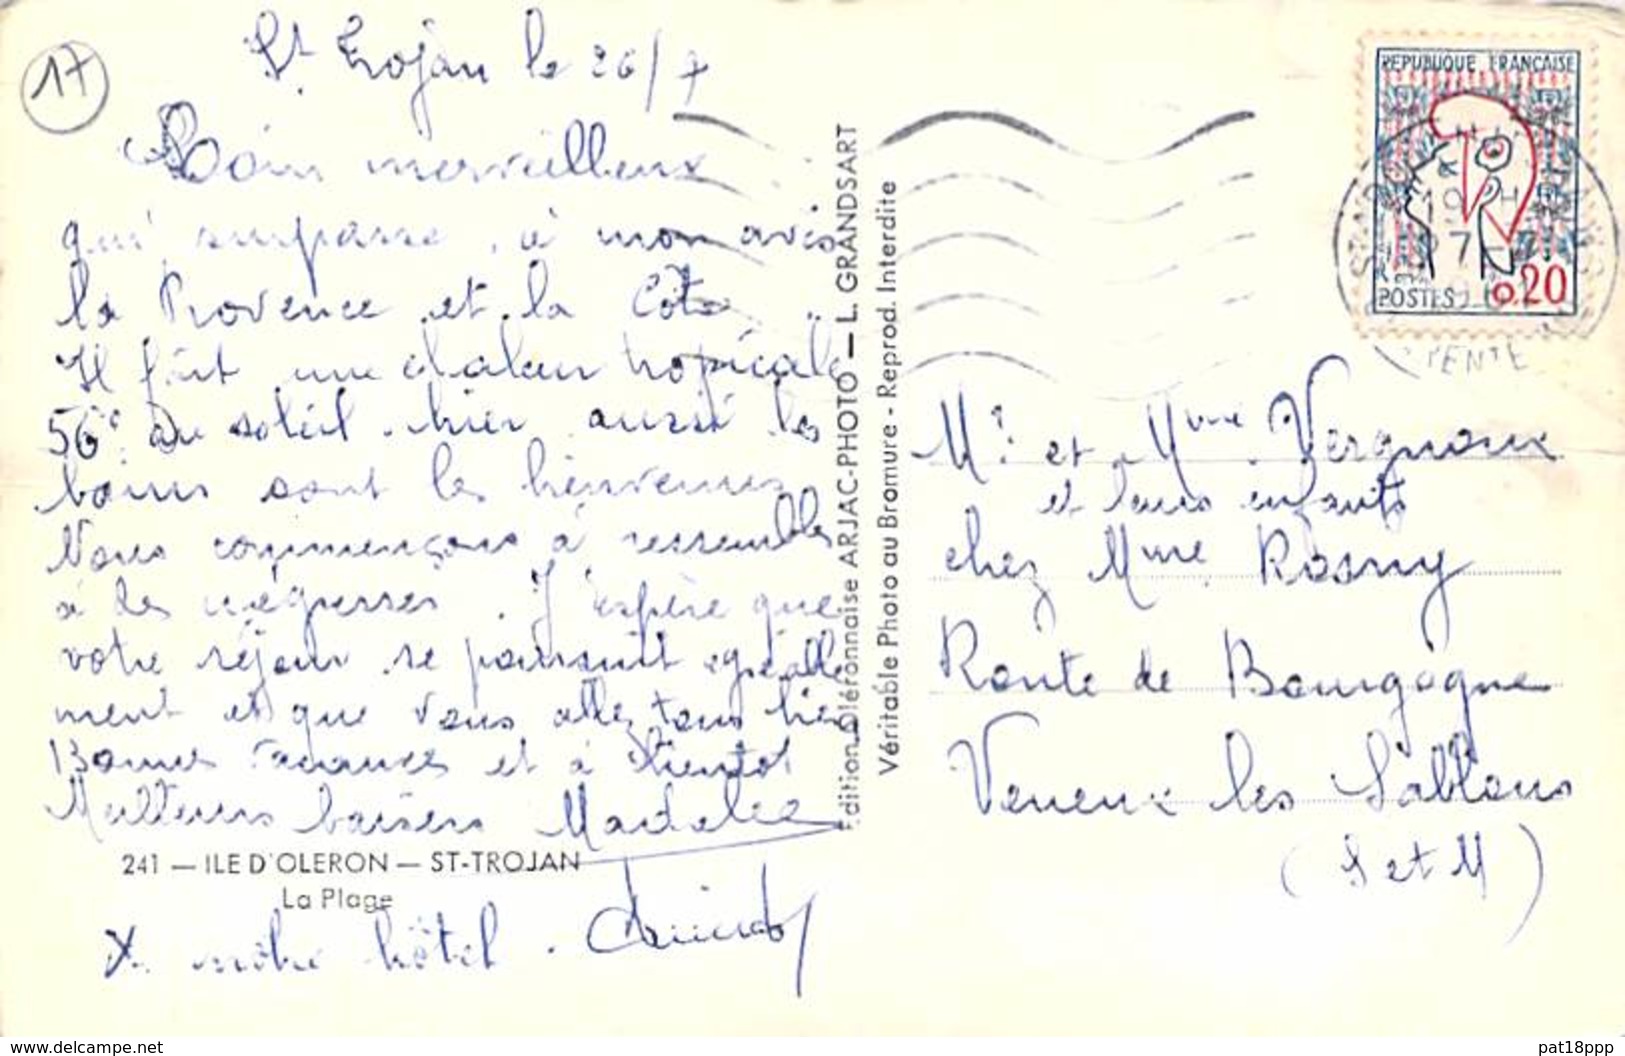 17
St Trojan le 26/7
Coin merveilleux
qui surpasse, à mon avis
la Provence et la Côte
Il fait une chaleur tropicale
56° au soleil hier aussi les
bains sont les bienvenus
Nous commençons à ressembler
à des négresses. J'espère que
votre séjour se poursuit agréable
ment et que vous allez tous bien
Bonnes vacances et à bientôt
Meilleurs baisers
241 — ILE D'OLERON — ST-TROJAN
La Plage
X notre hôtel.
Edition Oléronnaise ARJAC-PHOTO — L. GRANDSART
Véritable Photo au Bromure - Reprod. Interdite
REPUBLIQUE FRANÇAISE
POSTES 0,20
Mr. et Mme Vergnoux
et leurs enfants
chez Mme Rosny
Route de Bourgogne
Veneux les Sablons
(S et M)
www.delcampe.net
pat18ppp